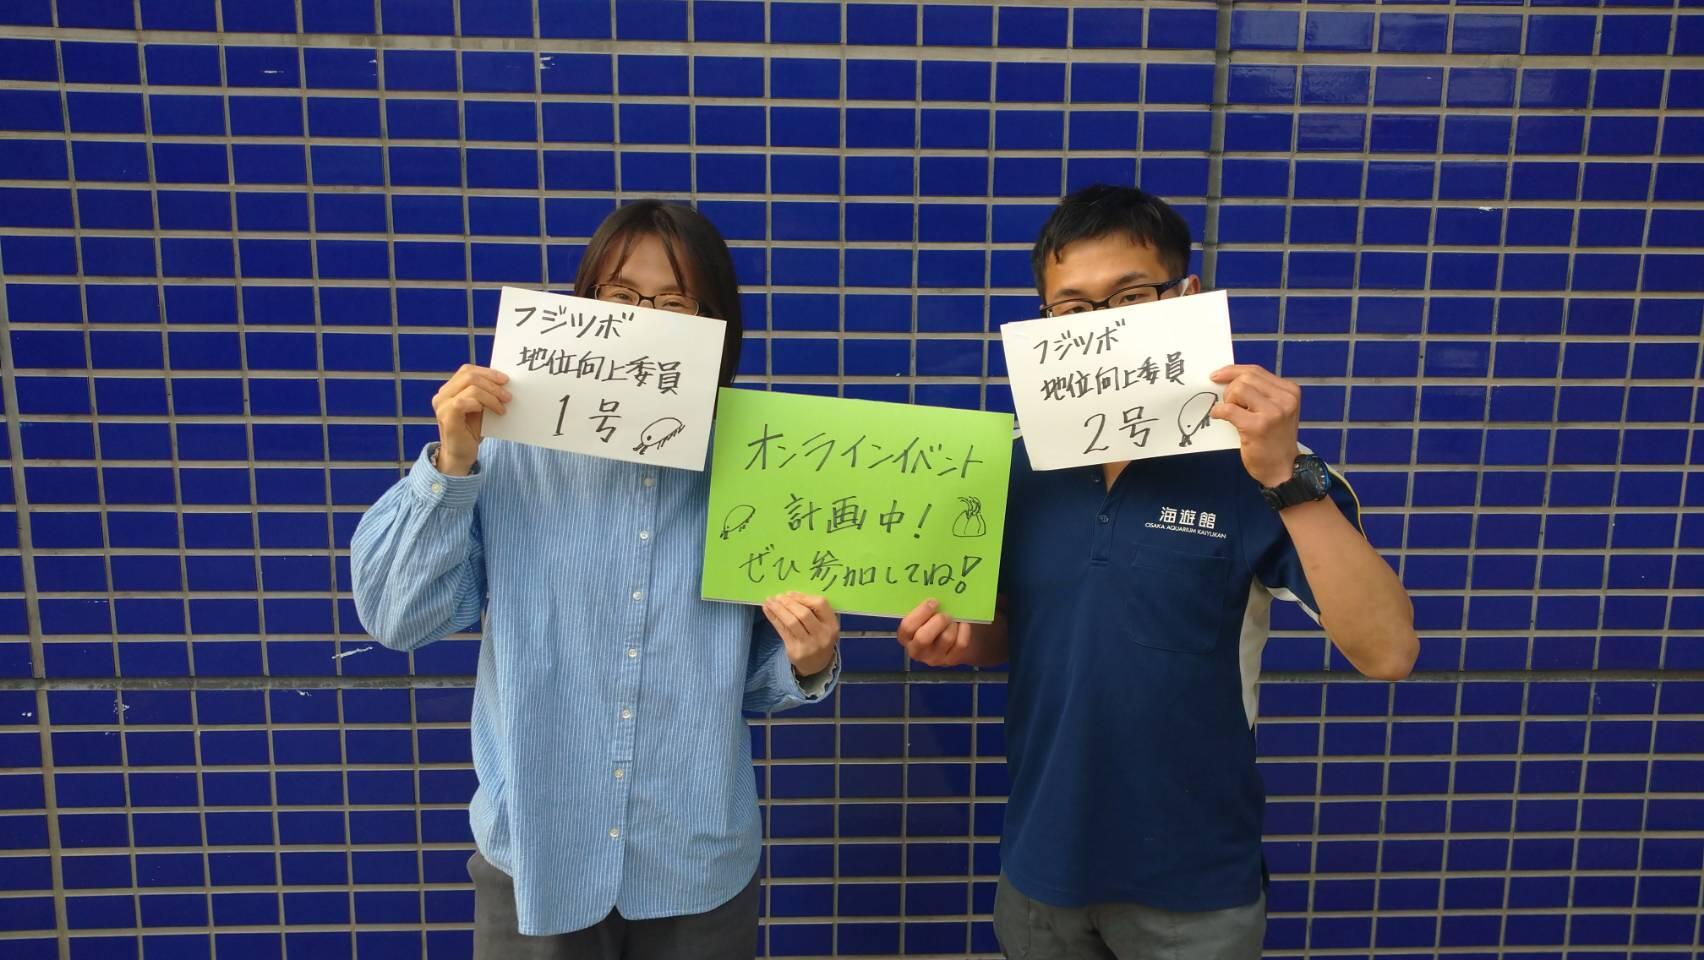 フジツボ
地位向上委員
1号
オンラインイベント
計画中!
ぜひ参加してね!
フジツボ
地位向上委員
2号
海遊館
OSAKA AQUARIUM KAIYUKAN